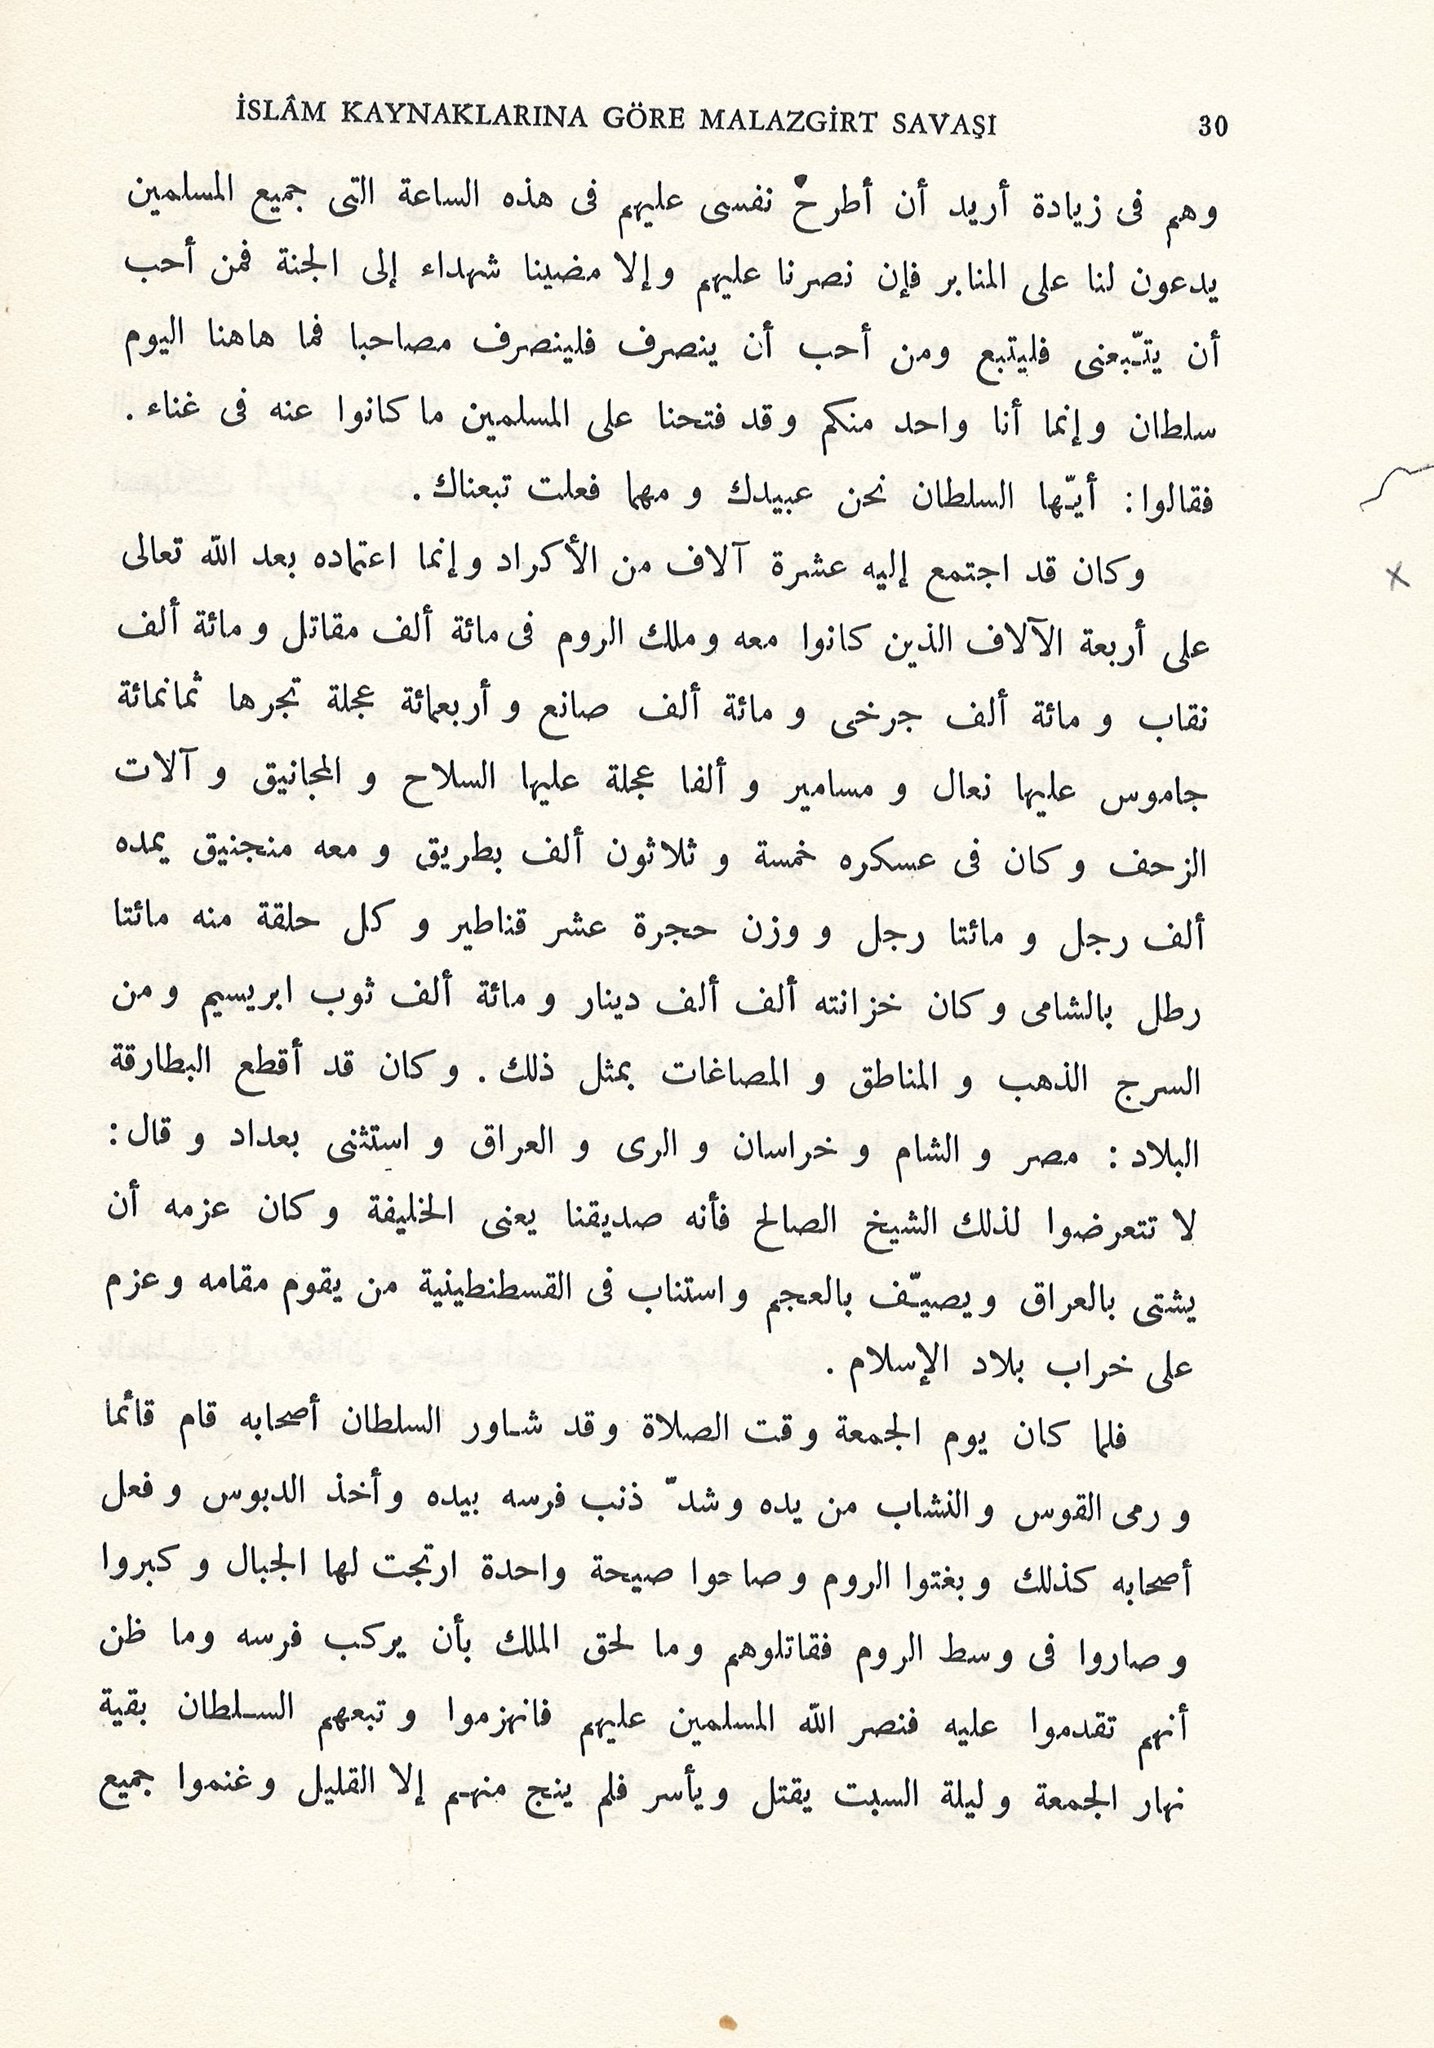 İSLÂM KAYNAKLARINA GÖRE MALAZGİRT SAVAŞI 30
وهم فى زيادة أريد أن أطرحْ نفسى عليهم فى هذه الساعة التى جميع المسلمين
يدعون لنا على المنابر فإن نصرنا عليهم وإلا مضينا شهداء إلى الجنة فمن أحب
أن يتّبعنى فليتبع ومن أحب أن ينصرف فلينصرف مصاحبا فما هاهنا اليوم
سلطان وإنما أنا واحد منكم وقد فتحنا على المسلمين ما كانوا عنه فى غناء.
فقالوا: أيّها السلطان نحن عبيدك و مهما فعلت تبعناك.
وكان قد اجتمع إليه عشرة آلاف من الأكراد وإنما اعتماده بعد الله تعالى
على أربعة الآلاف الذين كانوا معه وملك الروم فى مائة ألف مقاتل ومائة ألف
نقاب و مائة ألف جرخى و مائة ألف صانع و أربعمائة عجلة تجرها ثمانمائة
جاموس عليها نعال و مسامير و ألفا عجلة عليها السلاح و المجانيق و آلات
الزحف و كان فى عسكره خمسة و ثلاثون ألف بطريق و معه منجنيق يمده
ألف رجل و مائتا رجل و وزن حجرة عشر قناطير و كل حلقة منه مائتا
رطل بالشامى وكان خزانته ألف ألف دينار و مائة ألف ثوب ابريسيم و من
السرج الذهب و المناطق و المصاغات بمثل ذلك. وكان قد أقطع البطارقة
البلاد: مصر و الشام و خراسان و الرى و العراق و استثنى بعداد و قال:
لا تتعرضوا لذلك الشيخ الصالح فأنه صديقنا يعنى الخليفة وكان عزمه أن
يشتى بالعراق ويصيّف بالعجم واستناب فى القسطنطينية من يقوم مقامه وعزم
على خراب بلاد الإسلام.
فلما كان يوم الجمعة وقت الصلاة وقد شاور السلطان أصحابه قام قائما
ورمى القوس والنشاب من يده وشدّ ذنب فرسه بيده وأخذ الدبوس وفعل
أصحابه كذلك وبغتوا الروم وصاحوا صيحة واحدة ارتجت لها الجبال وكبروا
وصاروا فى وسط الروم فقاتلوهم وما لحق الملك بأن يركب فرسه وما ظن
أنهم تقدموا عليه فنصر الله المسلمين عليهم فانهزموا وتبعهم السلطان بقية
نهار الجمعة وليلة السبت يقتل ويأسر فلم ينج منهم إلا القليل وغنموا جميع